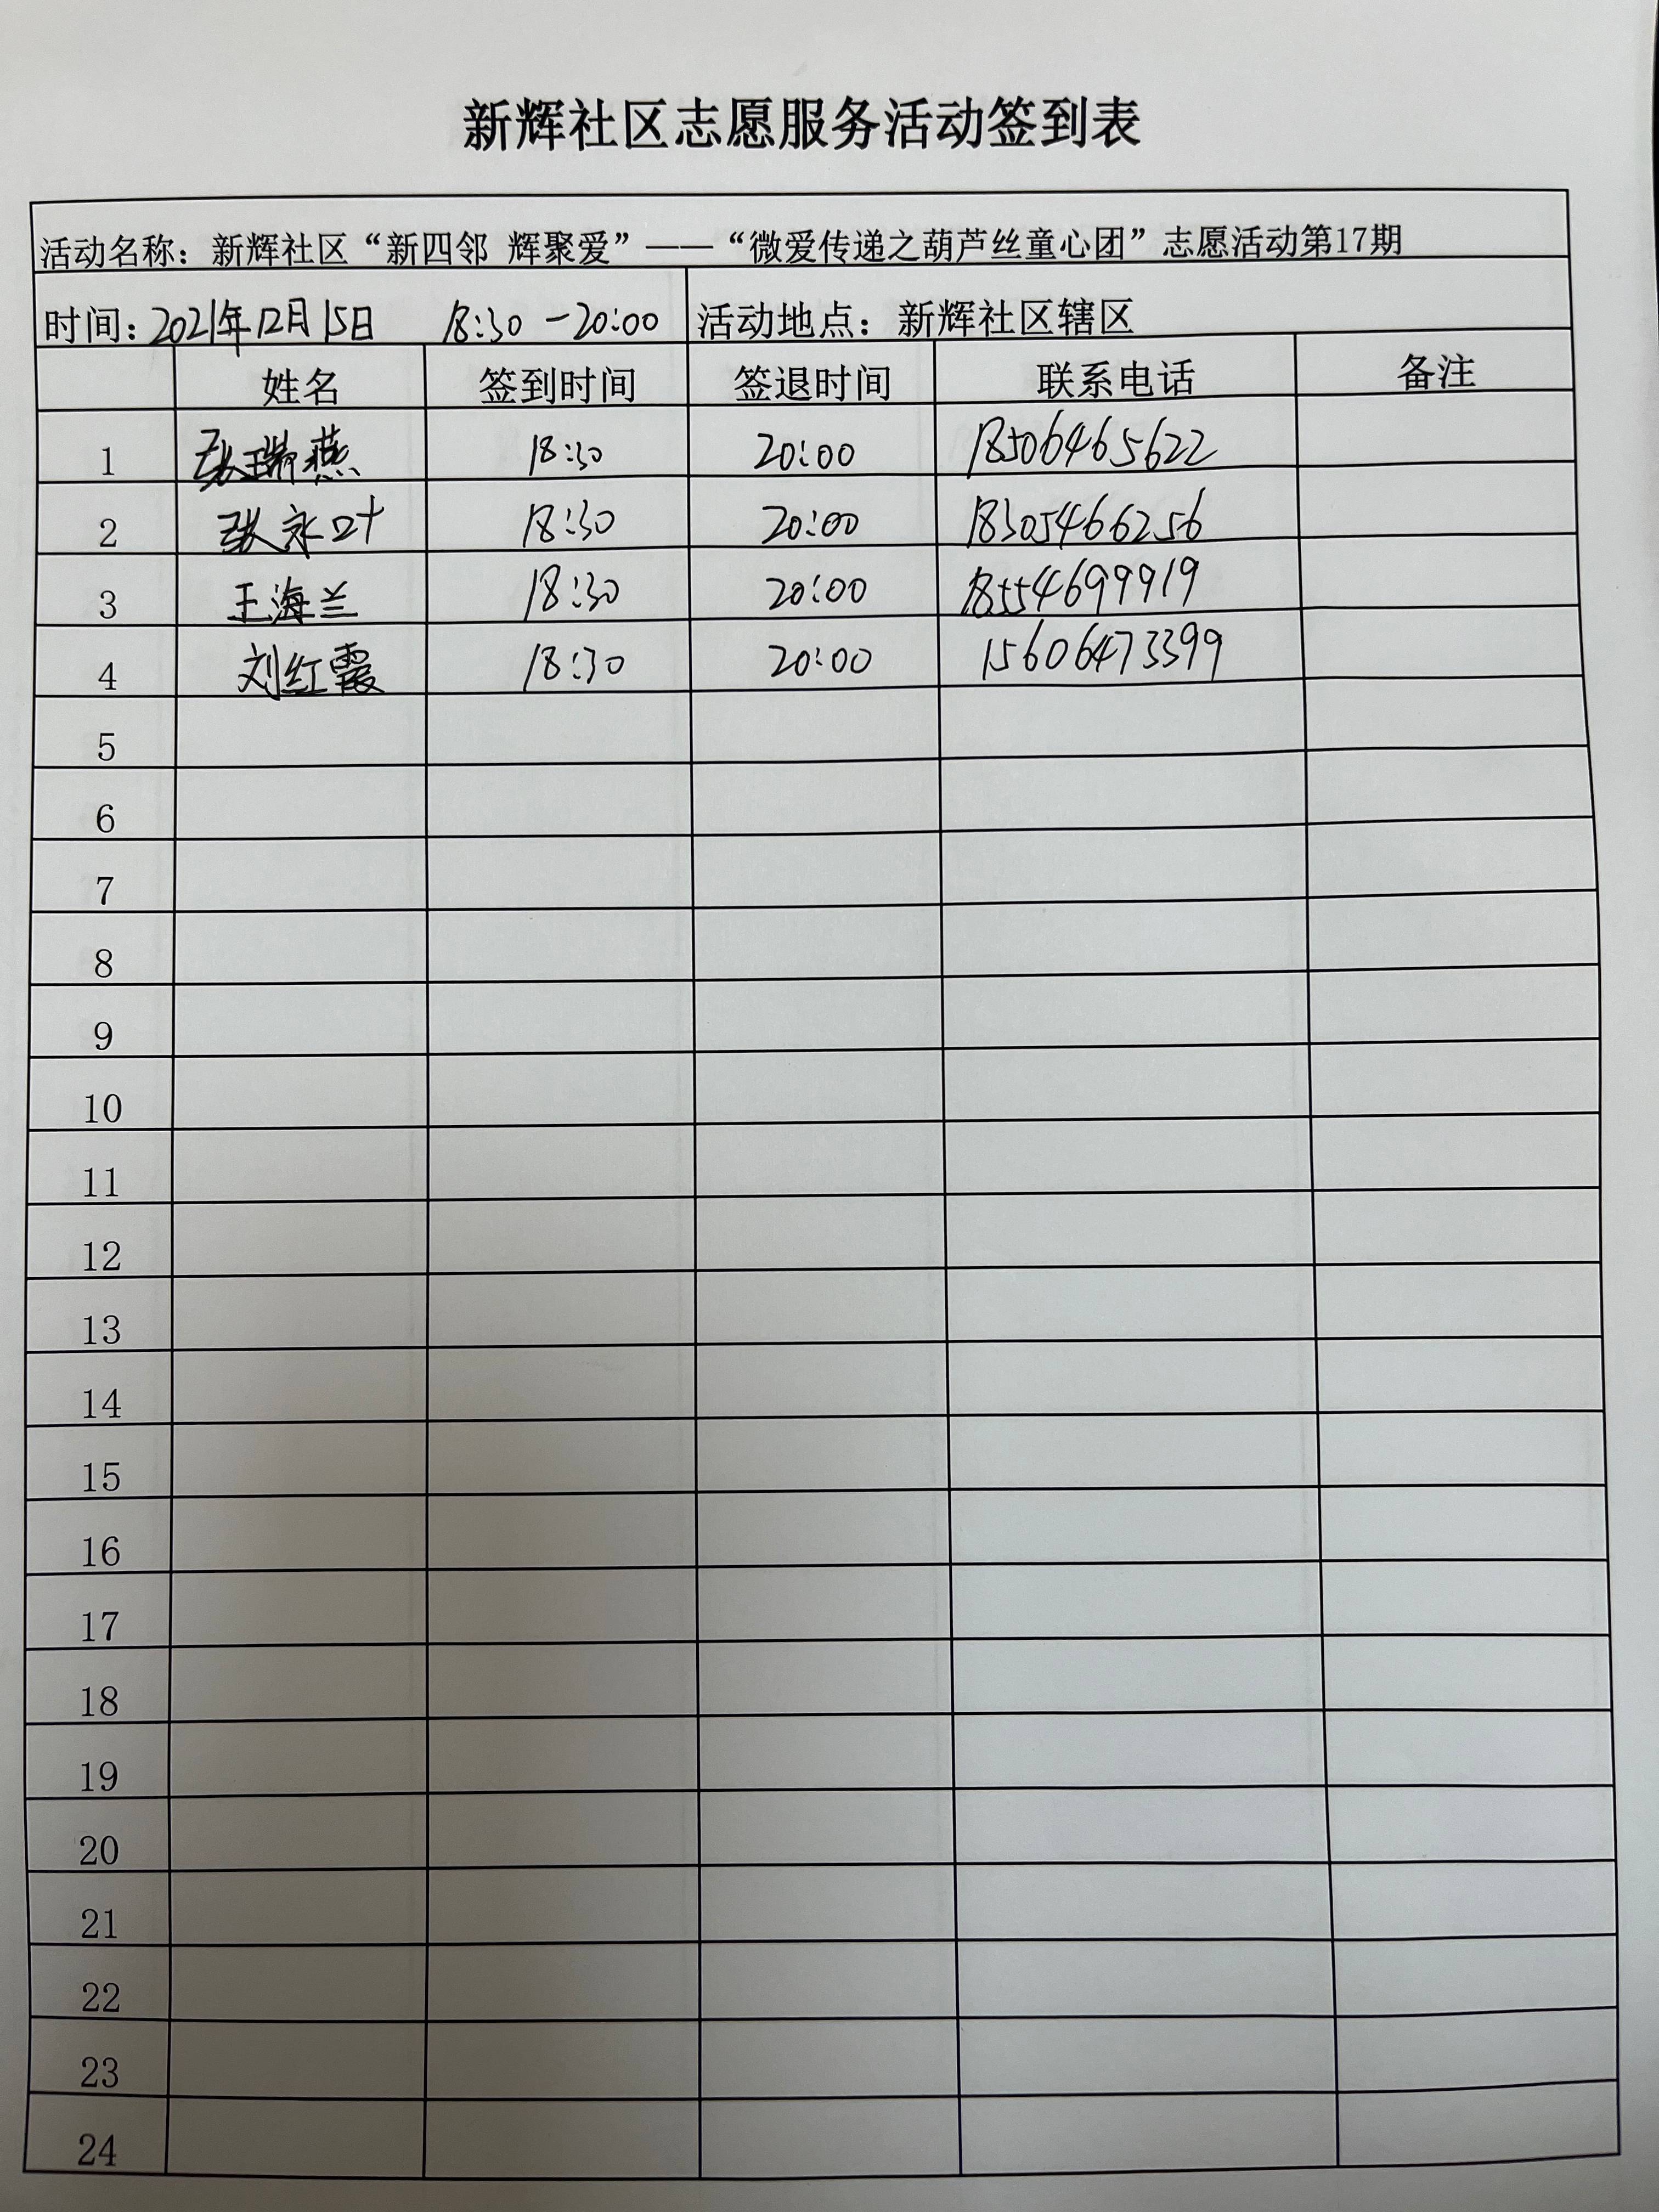 新辉社区志愿服务活动签到表
活动名称：新辉社区“新四邻 辉聚爱”——“微爱传递之葫芦丝童心团”志愿活动第17期
时间：2021年12月15日 18:30-20:00 活动地点：新辉社区辖区
姓名 签到时间 签退时间 联系电话 备注
1 张瑞燕 18:30 20:00 18506465622
2 张永叶 18:30 20:00 18305466256
3 王海兰 18:30 20:00 18554699919
4 刘红霞 18:30 20:00 15606473399
5
6
7
8
9
10
11
12
13
14
15
16
17
18
19
20
21
22
23
24